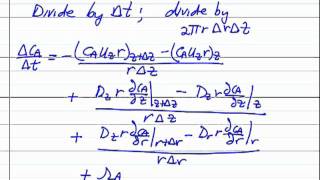 Divide by Δt ; divide by
2πr Δr Δz
ΔC_A/Δt = -((C_A u_z r)_{z+Δz} - (C_A u_z r)_z)/(r Δz)
+ (D_z r ∂C_A/∂z|_{z+Δz} - D_z r ∂C_A/∂z|_z)/(r Δz)
+ (D_r r ∂C_A/∂r|_{r+Δr} - D_r r ∂C_A/∂r|_r)/(r Δr)
+ r_A